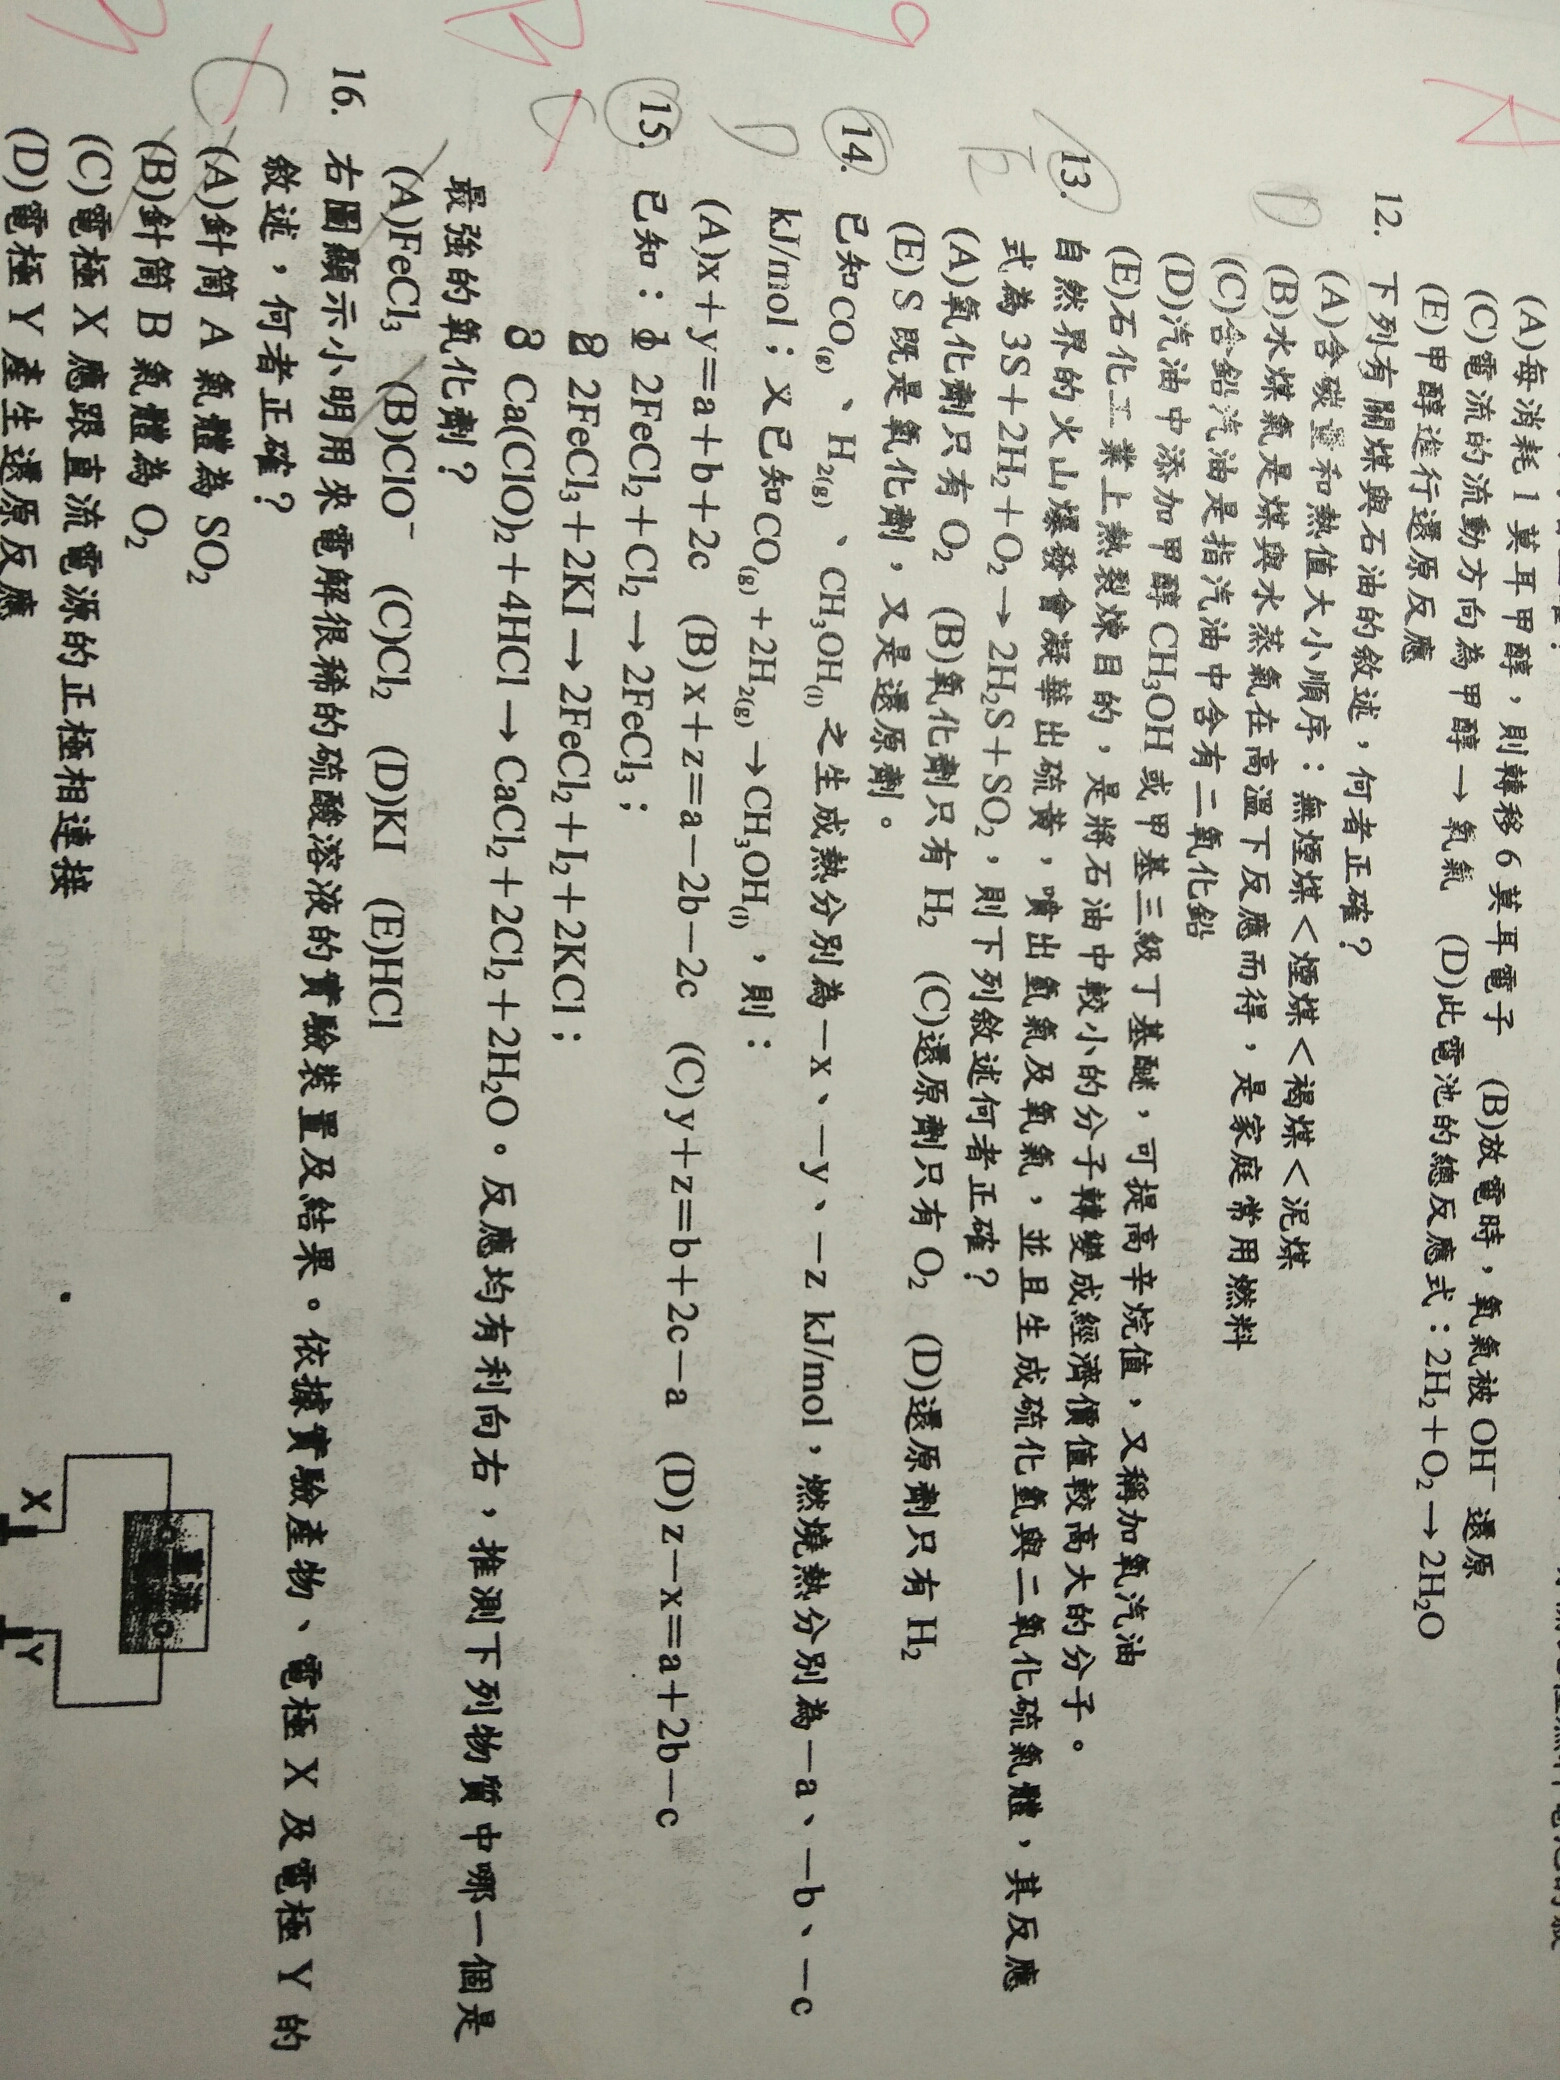 (A)每消耗 1 莫耳甲醇，則轉移 6 莫耳電子 (B)放電時，氧氣被 OH⁻ 還原
(C)電流的流動方向為甲醇→氧氣 (D)此電池的總反應式：2H₂＋O₂→2H₂O
(E)甲醇進行還原反應
12. 下列有關煤與石油的敘述，何者正確？
(A)含碳量和熱值大小順序：無煙煤＜煙煤＜褐煤＜泥煤
(B)水煤氣是煤與水蒸氣在高溫下反應而得，是家庭常用燃料
(C)含鉛汽油是指汽油中含有二氧化鉛
(D)汽油中添加甲醇 CH₃OH 或甲基三級丁基醚，可提高辛烷值，又稱加氧汽油
(E)石化工業上熱裂煉目的，是將石油中較小的分子轉變成經濟價值較高大的分子。
13. 自然界的火山爆發會凝華出硫黃，噴出氫氣及氧氣，並且生成硫化氫與二氧化硫氣體，其反應
式為 3S＋2H₂＋O₂→2H₂S＋SO₂，則下列敘述何者正確？
(A)氧化劑只有 O₂ (B)氧化劑只有 H₂ (C)還原劑只有 O₂ (D)還原劑只有 H₂
(E) S 既是氧化劑，又是還原劑。
14. 已知 CO₍g₎、H₂₍g₎、CH₃OH₍l₎ 之生成熱分別為－x、－y、－z kJ/mol，燃燒熱分別為－a、－b、－c
kJ/mol；又已知 CO₍g₎＋2H₂₍g₎→CH₃OH₍l₎，則：
(A)x＋y＝a＋b＋2c (B) x＋z＝a－2b－2c (C) y＋z＝b＋2c－a (D) z－x＝a＋2b－c
15. 已知：① 2FeCl₂＋Cl₂→2FeCl₃；
② 2FeCl₃＋2KI→2FeCl₂＋I₂＋2KCl；
③ Ca(ClO)₂＋4HCl→CaCl₂＋2Cl₂＋2H₂O。反應均有利向右，推測下列物質中哪一個是
最強的氧化劑？
(A)FeCl₃ (B)ClO⁻ (C)Cl₂ (D)KI (E)HCl
16. 右圖顯示小明用來電解很稀的硫酸溶液的實驗裝置及結果。依據實驗產物、電極 X 及電極 Y 的
敘述，何者正確？
(A)針筒 A 氣體為 SO₂
(B)針筒 B 氣體為 O₂
(C)電極 X 應跟直流電源的正極相連接
(D)電極 Y 產生還原反應
X
Y